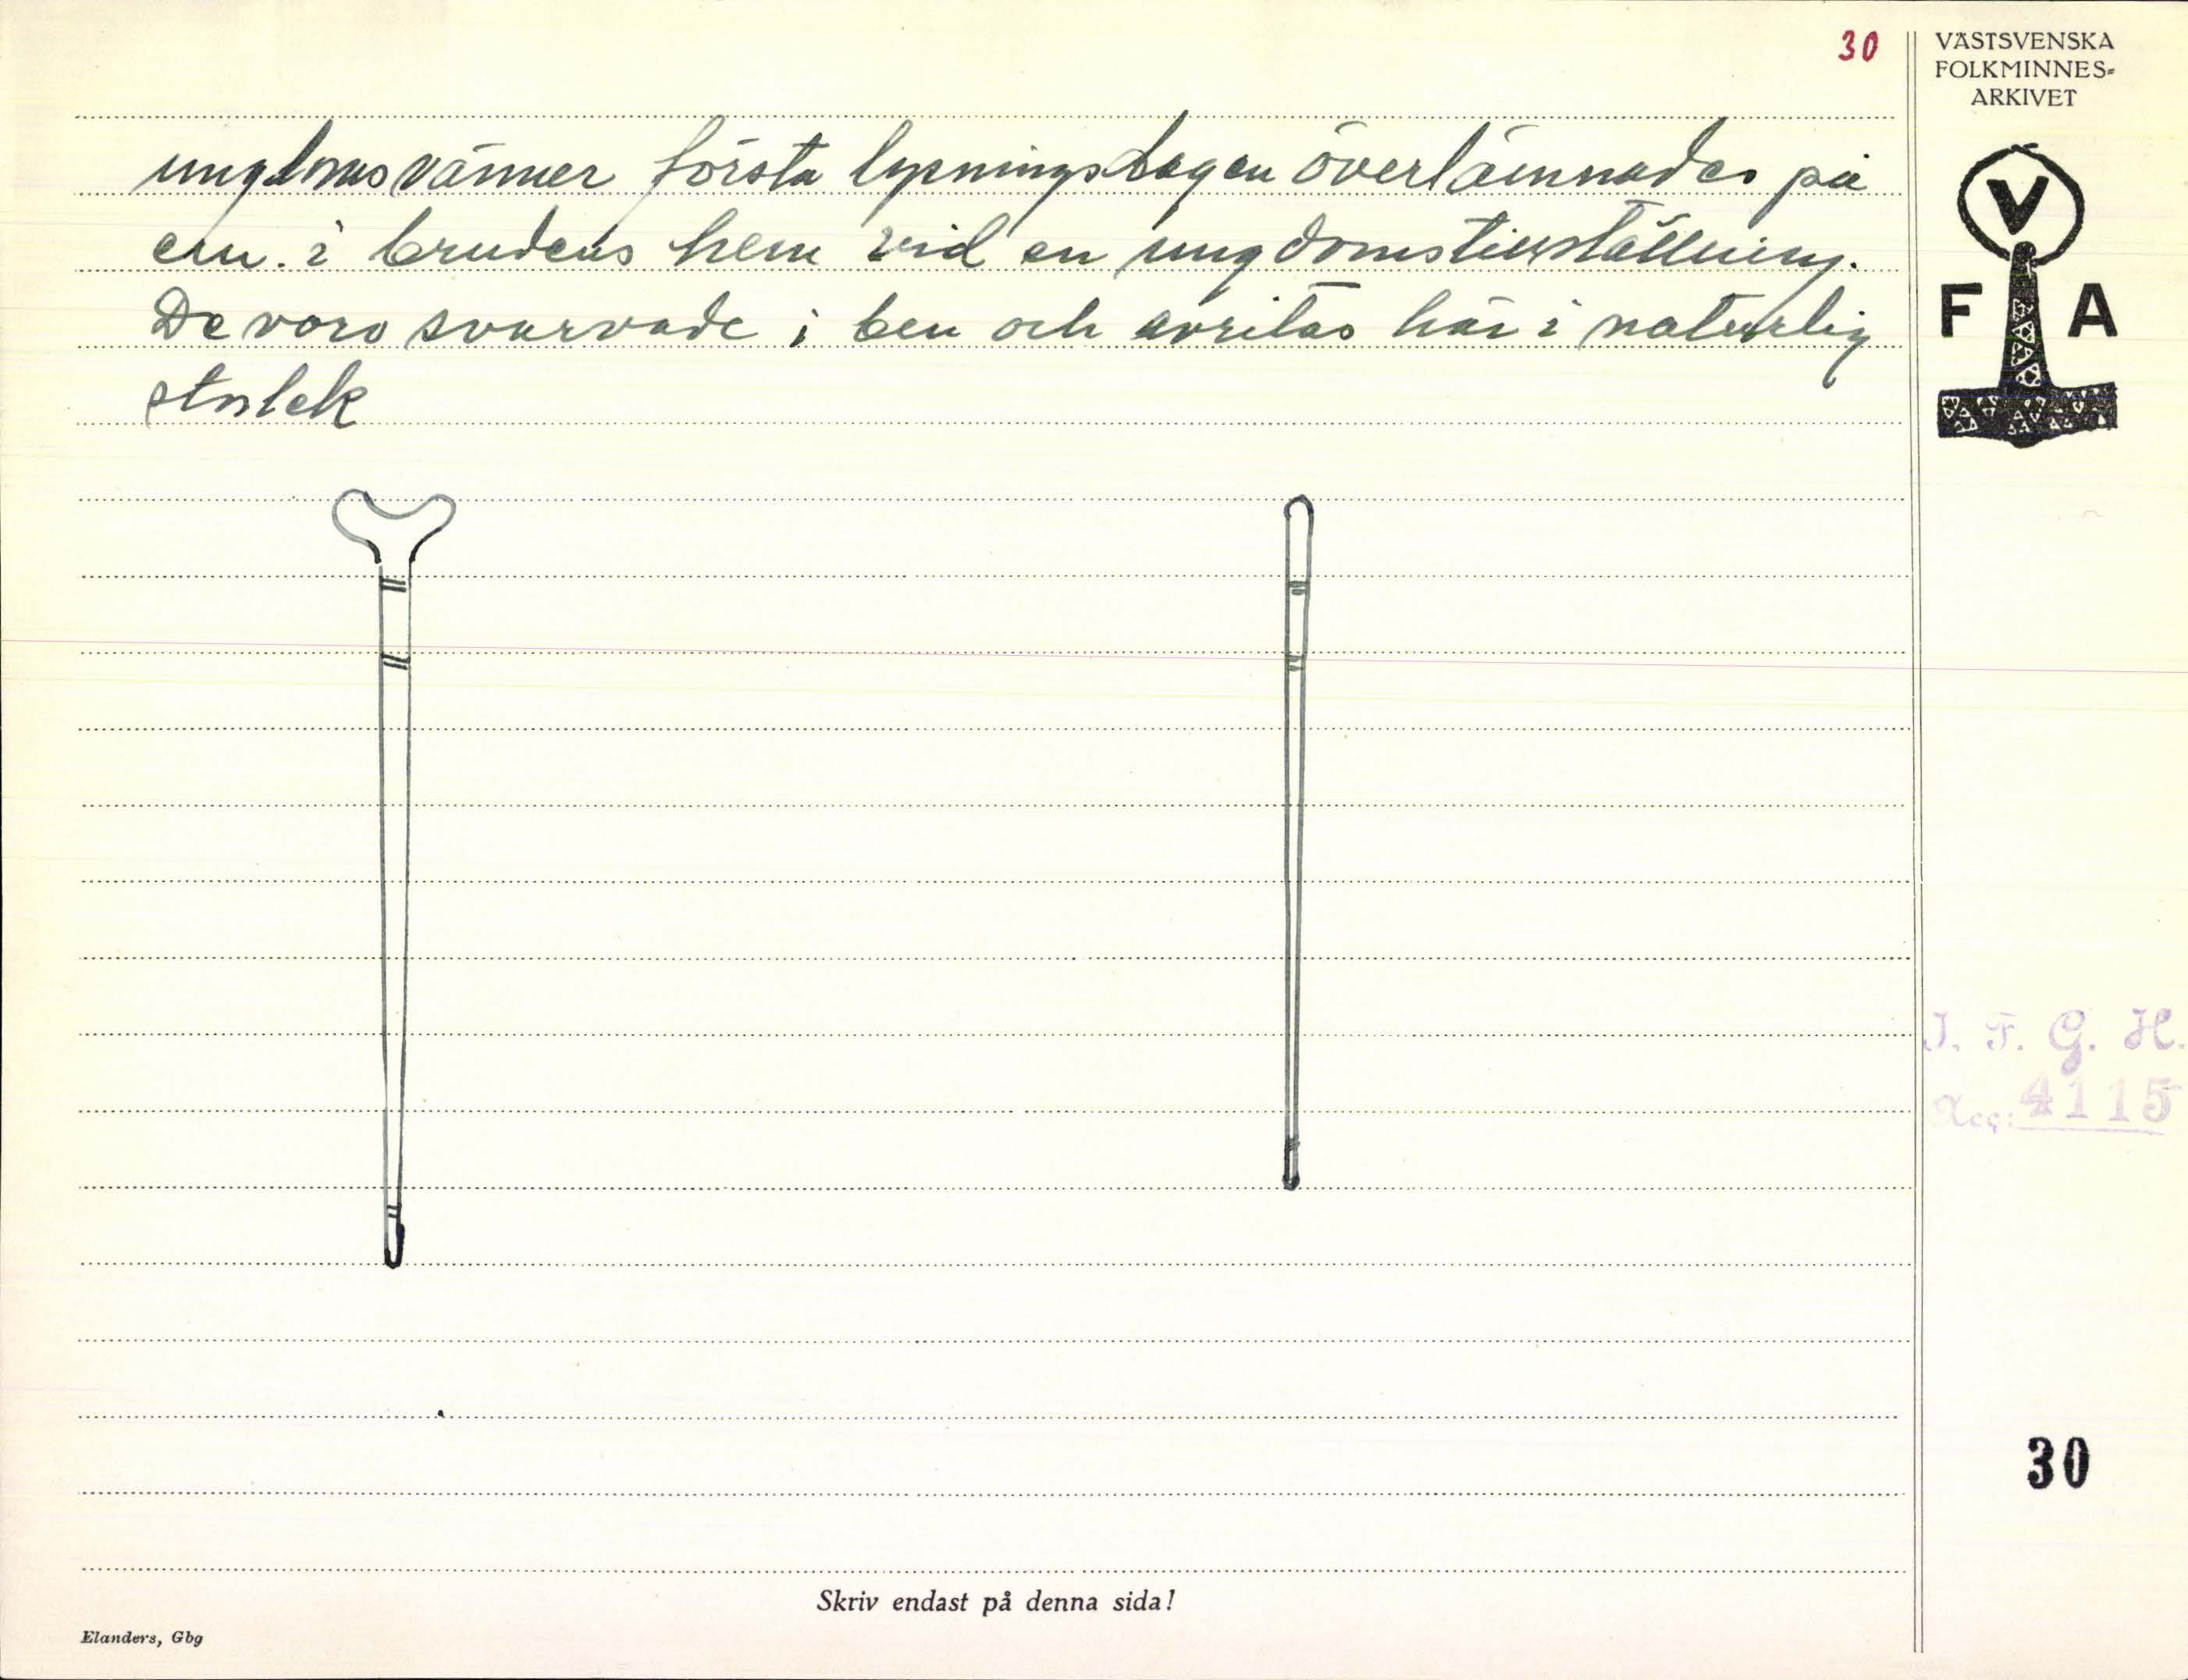 30
VÄSTSVENSKA
FOLKMINNES-
ARKIVET
ungdomsvänner första lysningsdagen överlämnades på
em. i brudens hem vid en ungdomstillställning.
De voro svarvade i ben och avritas här i naturlig
storlek
V
F A
I. F. G. H.
Acc: 4115
30
Skriv endast på denna sida!
Elanders, Gbg